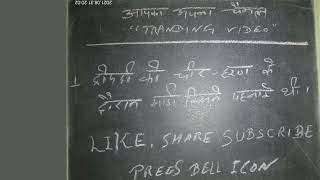 2021.08.31 20:02
आपका अपना चैनल
"TRANDING VIDEO"
1 द्रौपदी की चीर हरण के
दौरान साड़ी किसने पहनाई थी।
LIKE, SHARE SUBSCRIBE
PREES BELL ICON